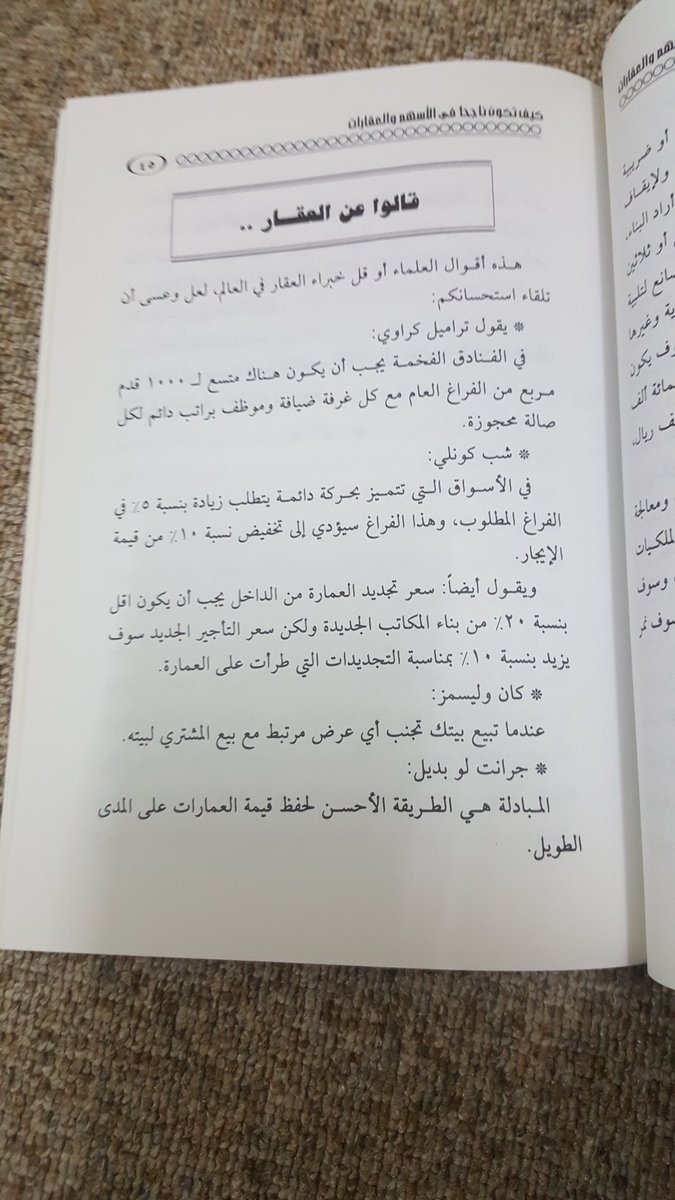 كيف تكون ناجحا في الأسهم والعقارات
٤٥
قالوا عن العقـــار ..
هـذه أقوال العلماء أو قل خبراء العقار في العالم، لعل وعسى أن
تلقاء استحسانكم:
* يقول تراميل كراوي:
في الفنادق الفخمة يجب أن يكون هناك متسع لـ ١٠٠٠ قدم
مربع من الفراغ العام مع كل غرفة ضيافة وموظف براتب دائم لكل
صالة محجوزة.
* شب كونلي:
في الأسواق التي تتميز بحركة دائمة يتطلب زيادة بنسبة ٥٪ في
الفراغ المطلوب، وهذا الفراغ سيؤدي إلى تخفيض نسبة ١٠٪ من قيمة
الإيجار.
ويقول أيضاً: سعر تجديد العمارة من الداخل يجب أن يكون اقل
بنسبة ٢٠٪ من بناء المكاتب الجديدة ولكن سعر التأجير الجديد سوف
يزيد بنسبة ١٠٪ بمناسبة التجديدات التي طرأت على العمارة.
* كان وليسمز:
عندما تبيع بيتك تجنب أي عرض مرتبط مع بيع المشتري لبيته.
* جرانت لو بديل:
المبادلة هي الطريقة الأحسن لحفظ قيمة العمارات على المدى
الطويل.
هم والعقارات
أو ضريبة
ولإيقاف
أراد البناء،
أو ثلاثين
صانع لتلبية
ية وغيرها
وف يكون
مائة ألف
ف ريال،
ومعالجة
لملكيات
وسوف
سوف نمر